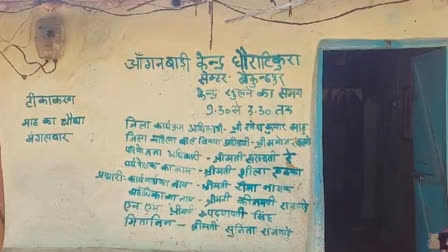 आँगनबाड़ी केन्द्र धौराटिकुरा
सेक्टर- बैकुन्ठपुर
केन्द्र खुलने का समय
9.30 से 3.30 तक
टीकाकरण
माह का चौथा
मंगलवार
जिला कार्यक्रम अधिकारी- श्री रमेश कुमार साहू
जिला महिला बाल विकास अधिकारी- श्री मनोज
परियोजना अधिकारी - श्रीमती सरस्वती दे
पर्यवेक्षक का नाम - श्रीमती शीला
प्रभारी- कार्यकर्ता का नाम - श्रीमती रीना नायक
सहायिका का नाम - श्रीमती
एन.एम. श्रीमती सिंह
मितानिन - श्रीमती सुनिता राजगो